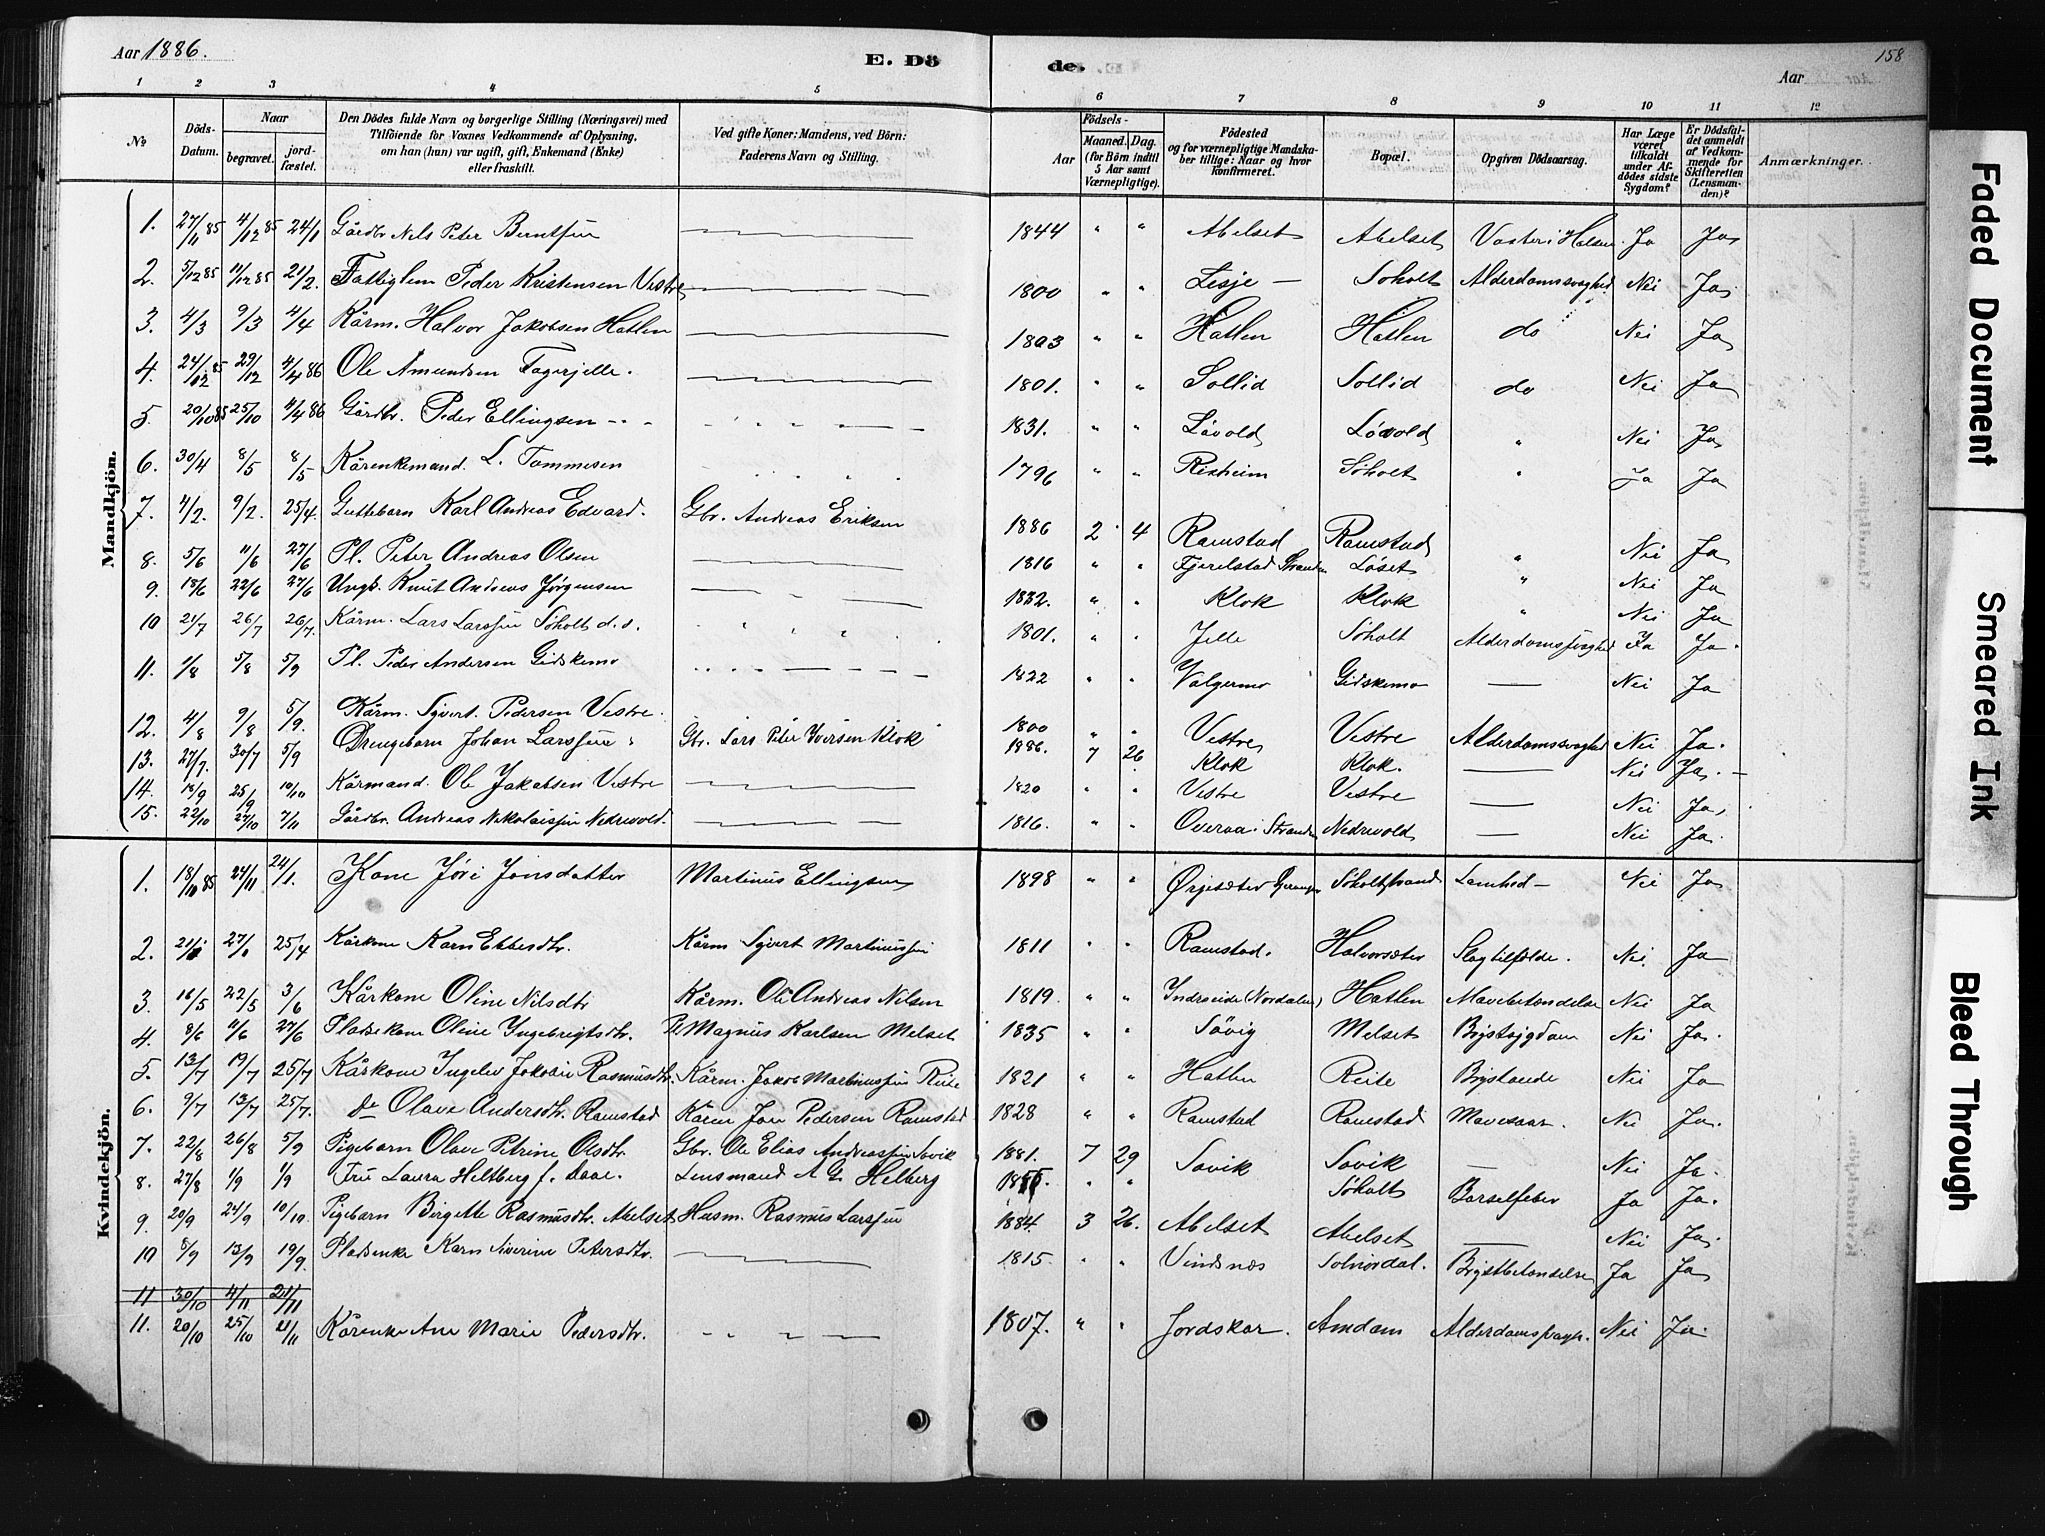 Aar 1886.
E. Dö de.
Aar
158
1 2 3 4 5 6 7 8 9 10 11 12
No
Döds-Datum.
Naar
begravet.
jord-fæstet.
Den Dödes fulde Navn og borgerlige Stilling (Næringsvei) med
Tilföiende for Voxnes Vedkommende af Oplysning,
om han (hun) var ugift, gift, Enkemand (Enke)
eller fraskilt.
Ved gifte Koner: Mandens, ved Börn:
Faderens Navn og Stilling.
Födsels-
Aar
Maaned. Dag.
(for Börn indtil
5 Aar samt
Værnepligtige).
Födested
og for værnepligtige Mandska-
ber tillige: Naar og hvor
konfirmeret.
Bopæl.
Opgiven Dödsaarsag.
Har Læge
været
tilkaldt
under Af-
dödes sidste
Sygdom?
Er Dödsfal-
det anmeldt
af Vedkom-
mende for
Skifteretten
(Lensman-
den)?
Anmærkninger.
Mandkjön.
1. 27/11 85 4/12 85 24/1 Gårdbr Nels Peter Berntsen 1844 " " Abelset Abelset Vaster i Halsen Ja Ja
2. 5/12 85 11/12 85 21/2. Fattiglem Peder Kristensen Vestre 1800 " " Lesje Søholt Alderdomssvaghed Nei Ja
3. 4/3 9/3 4/4 Kårm. Halvor Jakobsen Hatlen 1803 " " Hatlen Hatlen do Nei Ja
4. 24/12 85 29/12 4/4 86 Ole Amundsen Fagerjelle. 1801. " " Sollid Sollid do Nei Ja
5. 20/10 85 25/10 4/4 86 Gårdbr. Peder Ellingsen 1831. " " Løvold Løvold " Nei Ja
6. 30/4 8/5 8/5 Kårenkemand. L. Tommesen 1796 " " Rexheim Søholt " Ja Ja
7. 4/2. 9/2. 25/4. Guttebarn Karl Andreas Edvard. Gbr. Andreas Eriksen 1886 2 4 Ramstad Ramstad " Nei Ja
8. 5/6 11/6 27/6 Pl. Peter Andreas Olsen 1816 " " Fjerelstad Stranden Løset " Nei Ja
9. 18/6 22/6 27/6 Ungk. Knut Andreas Jørgensen 1832. " " Klok Klok " Nei Ja
10 21/7 26/7 26/7. Kårm. Lars Larssen Søholt d. s. 1801. " " Jelle Søholt Alderdomssvaghed Ja Ja.
11. 1/8 5/8 5/9 Pl. Peder Andersen Gidskemo 1822 " " Valgermo Gidskemo Nei Ja
12. 4/8 9/8 5/9. Kårm. Syvert. Pedersen Vestre. 1800 " " Vestre Vestre Alderdomssvaghed Nei Ja.
13. 27/7. 30/7 5/9 Drengebarn Johan Larssen Gbr. Lars Peter Iversen Klok 1886. 7 26 Klok Klok. Nei Ja.
14. 18/9 25/9 10/10 Kårmand. Ole Jakobsen Vestre 1820 " " Vestre Vestre Nei Ja,
15. 22/10 27/10 7/11 Gårdbr. Andreas Nikolaissen Nedrevold. 1816. " " Overaa. Stranden Nedrevold Nei Ja.
Kvindekjön.
1. 18/10 85 24/11 24/1. Kone Jøri Jonsdatter Martinus Ellingsen 1898 " " Ørjesæter Geranger Søholtstrand Lamhed Nei Ja
2. 25/4 Kårkone Karn Ebbesdtr. Kårm Syvert Martinussen 1811 " " Ramstad. Halvorsæter Slagtilfælde. Nei. Ja
3 16/5 22/5 3/6 Kårkone Oline Nilsdtr Kårm. Ole Andreas Nilsen 1819. " " Indreeide (Nordalen) Hatlen Mavebetændelse Nei Ja
4. 8/6 11/6 27/6 Pladsekone Oline Ingebrigtsdtr. Pl Magnus Karlsen Melset 1835 " " Søvig Melset Brystsygdom Nei Ja.
5. 13/7 19/7 25/7 Kårkone Ingelev Jokobie Rasmusdtr. Kårm. Jakob Martinussen Reite 1821 " " Hatlen Reite Brystonde Nei Ja
6. 9/7 13/7 25/7. Do Olave Andersdtr. Ramstad Kårm Jon Pedersen Ramstad 1828 " " Ramstad Ramstad Mavesaar. Nei Ja.
7. 22/8 26/8 5/9 Pigebarn Olave Petrine Olsdtr. Gbr. Ole Elias Andreassen Sovik 1881. 7 29 Sovik Sovik Nei Ja.
8. 27/8 1/9 1/9 Fru Laura Heltberg f. Daae. Lensmand A G. Helberg " " Søholt Barselfeber Ja Ja.
9. 20/9 24/9 10/10. Pigebarn Birgitte Rasmusdtr. Abelset Husm. Rasmus Larssen 1884. 3 26. Abelset Abelset Nei Ja.
10 8/9 13/9 19/9. Pladsenke Karn Siverine Petersdtr. 1815. " " Vindsnes Solnørdal. Brystbetændelse Ja Ja
11 30/10 4/11 21/11
11. 20/10 25/10 21/11 Kårenke Ane Marie Pedersdtr. 1807. " " Jordskar. Amdam Alderdomssvagh. Nei Ja.
Faded Document
Smeared Ink
Bleed Through